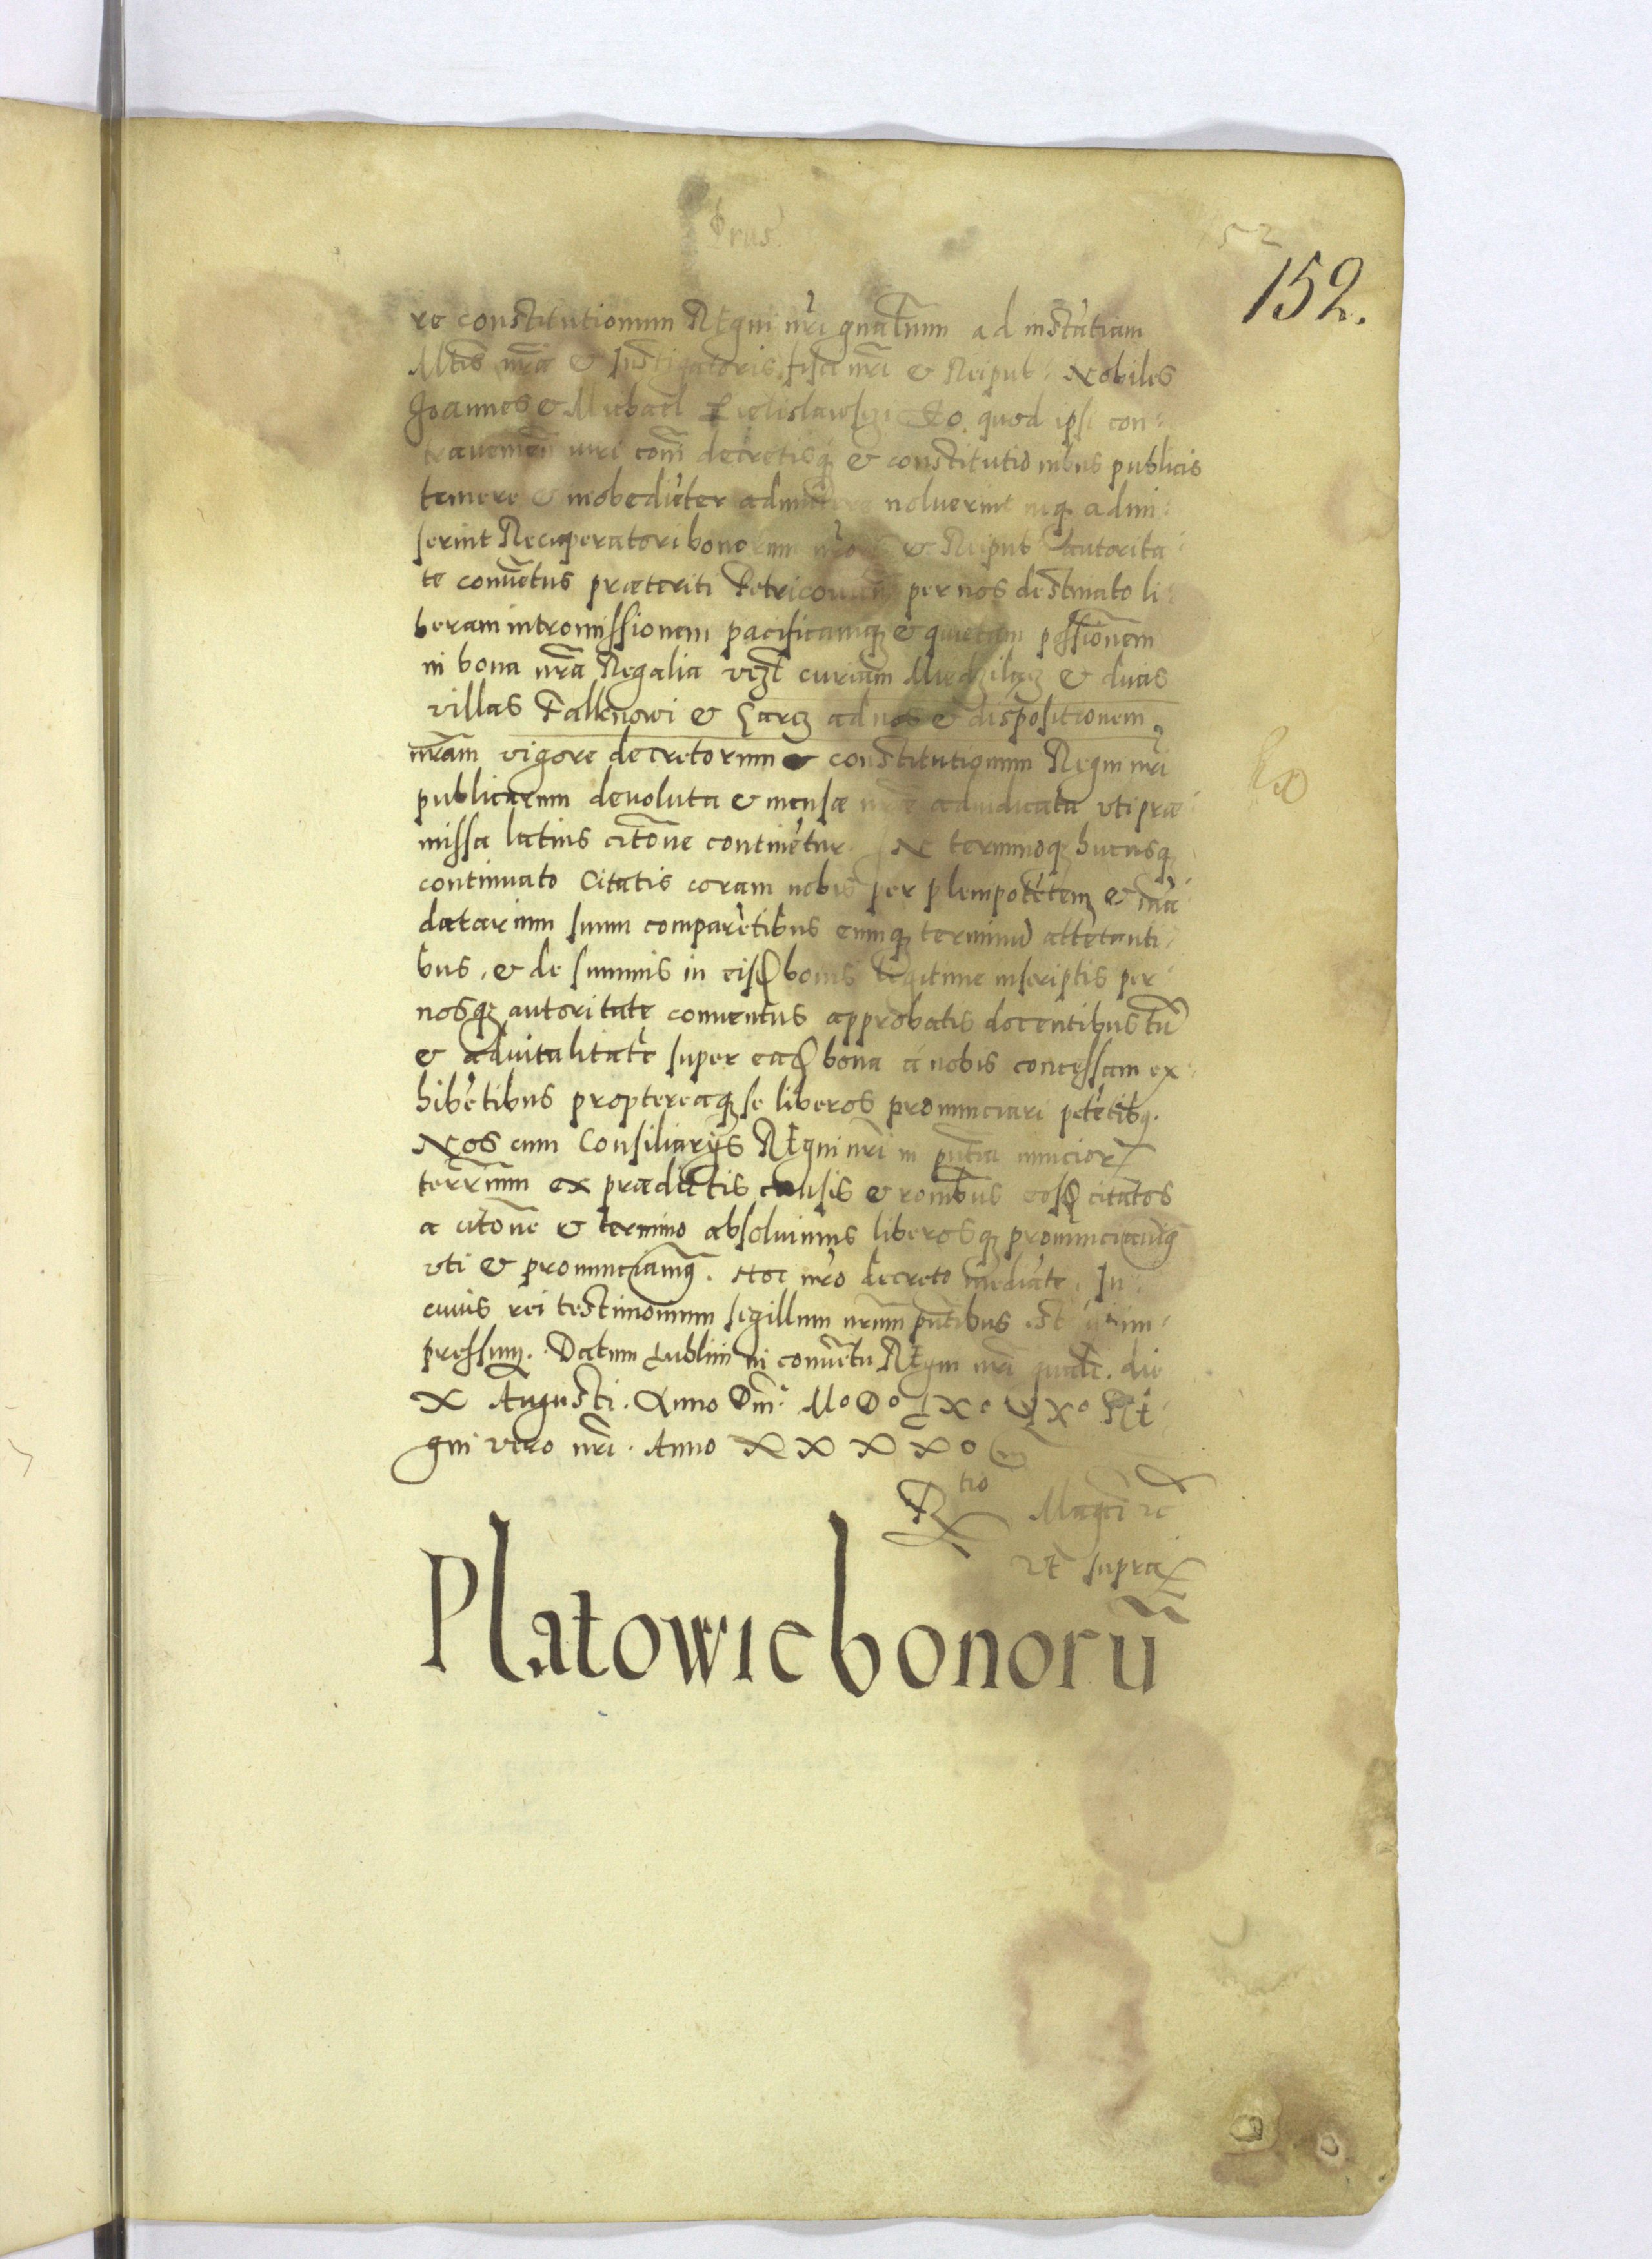 Prus.
52
152.
re constitutionum Regni nr̃i gnãlium ad instãtiam
Mtis nr̃æ & Instigatoris fisci nr̃i & Reipub: Nobiles
Joannes & Michael Eo. quod ipsi con:
iuri com̃ decretisq; & constitutionibus publicis
temere & inobediẽter admittere noluerint neq; admi:
serint Recuperatori bonorum nr̃orum & Reipub: autorita:
te convẽtus præteriti Petricovien̄ per nos destinato li:
beram intromissionem pacificamq; & quietam possẽssionem
in bona nr̃a Regalia vczt curiam & duas
villas Falknowi & ad nos & dispositionem
nr̃am vigore decretorum & constitutionum Regni nr̃i
publicarum devoluta & mensæ nr̃æ adiudicata uti præ:
missa latius citõne continẽtur. In terminoq; hucusq;
continuato Citatis coram nobis per plenipotẽtem & mã:
datarium suum comparẽtibus eumq; terminũ attẽtanti:
bus, & de summis in eisđ bonis legitime inscriptis per
nosq; autoritate conventus approbatis docentibus tũ
& advitalitatẽ super eađ bona a nobis concessam ex:
hibẽtibus proptereaq; se liberos pronunciari petẽtibq.
Nos cum Consiliarijs Regni nr̃i in pñtia nuncior
terrarum ex prædictis causis & ronibus eosđ citatos
a citõne & termino absoluimus liberosq; pronunciamq
uti & pronunciamq. Hoc nr̃o decreto mediãte. In
cuius rei testimonium sigillum nr̃um pñtibus est im:
pressum. Datum Lublini in convẽtu Regni nr̃i gnãli. die
X Augusti. Anno Dñi: M° D° LX° IX° Re
gni vero nr̃i. Anno XXXX°
Rtio Magci &c
ut supra
Platowie bonorũ